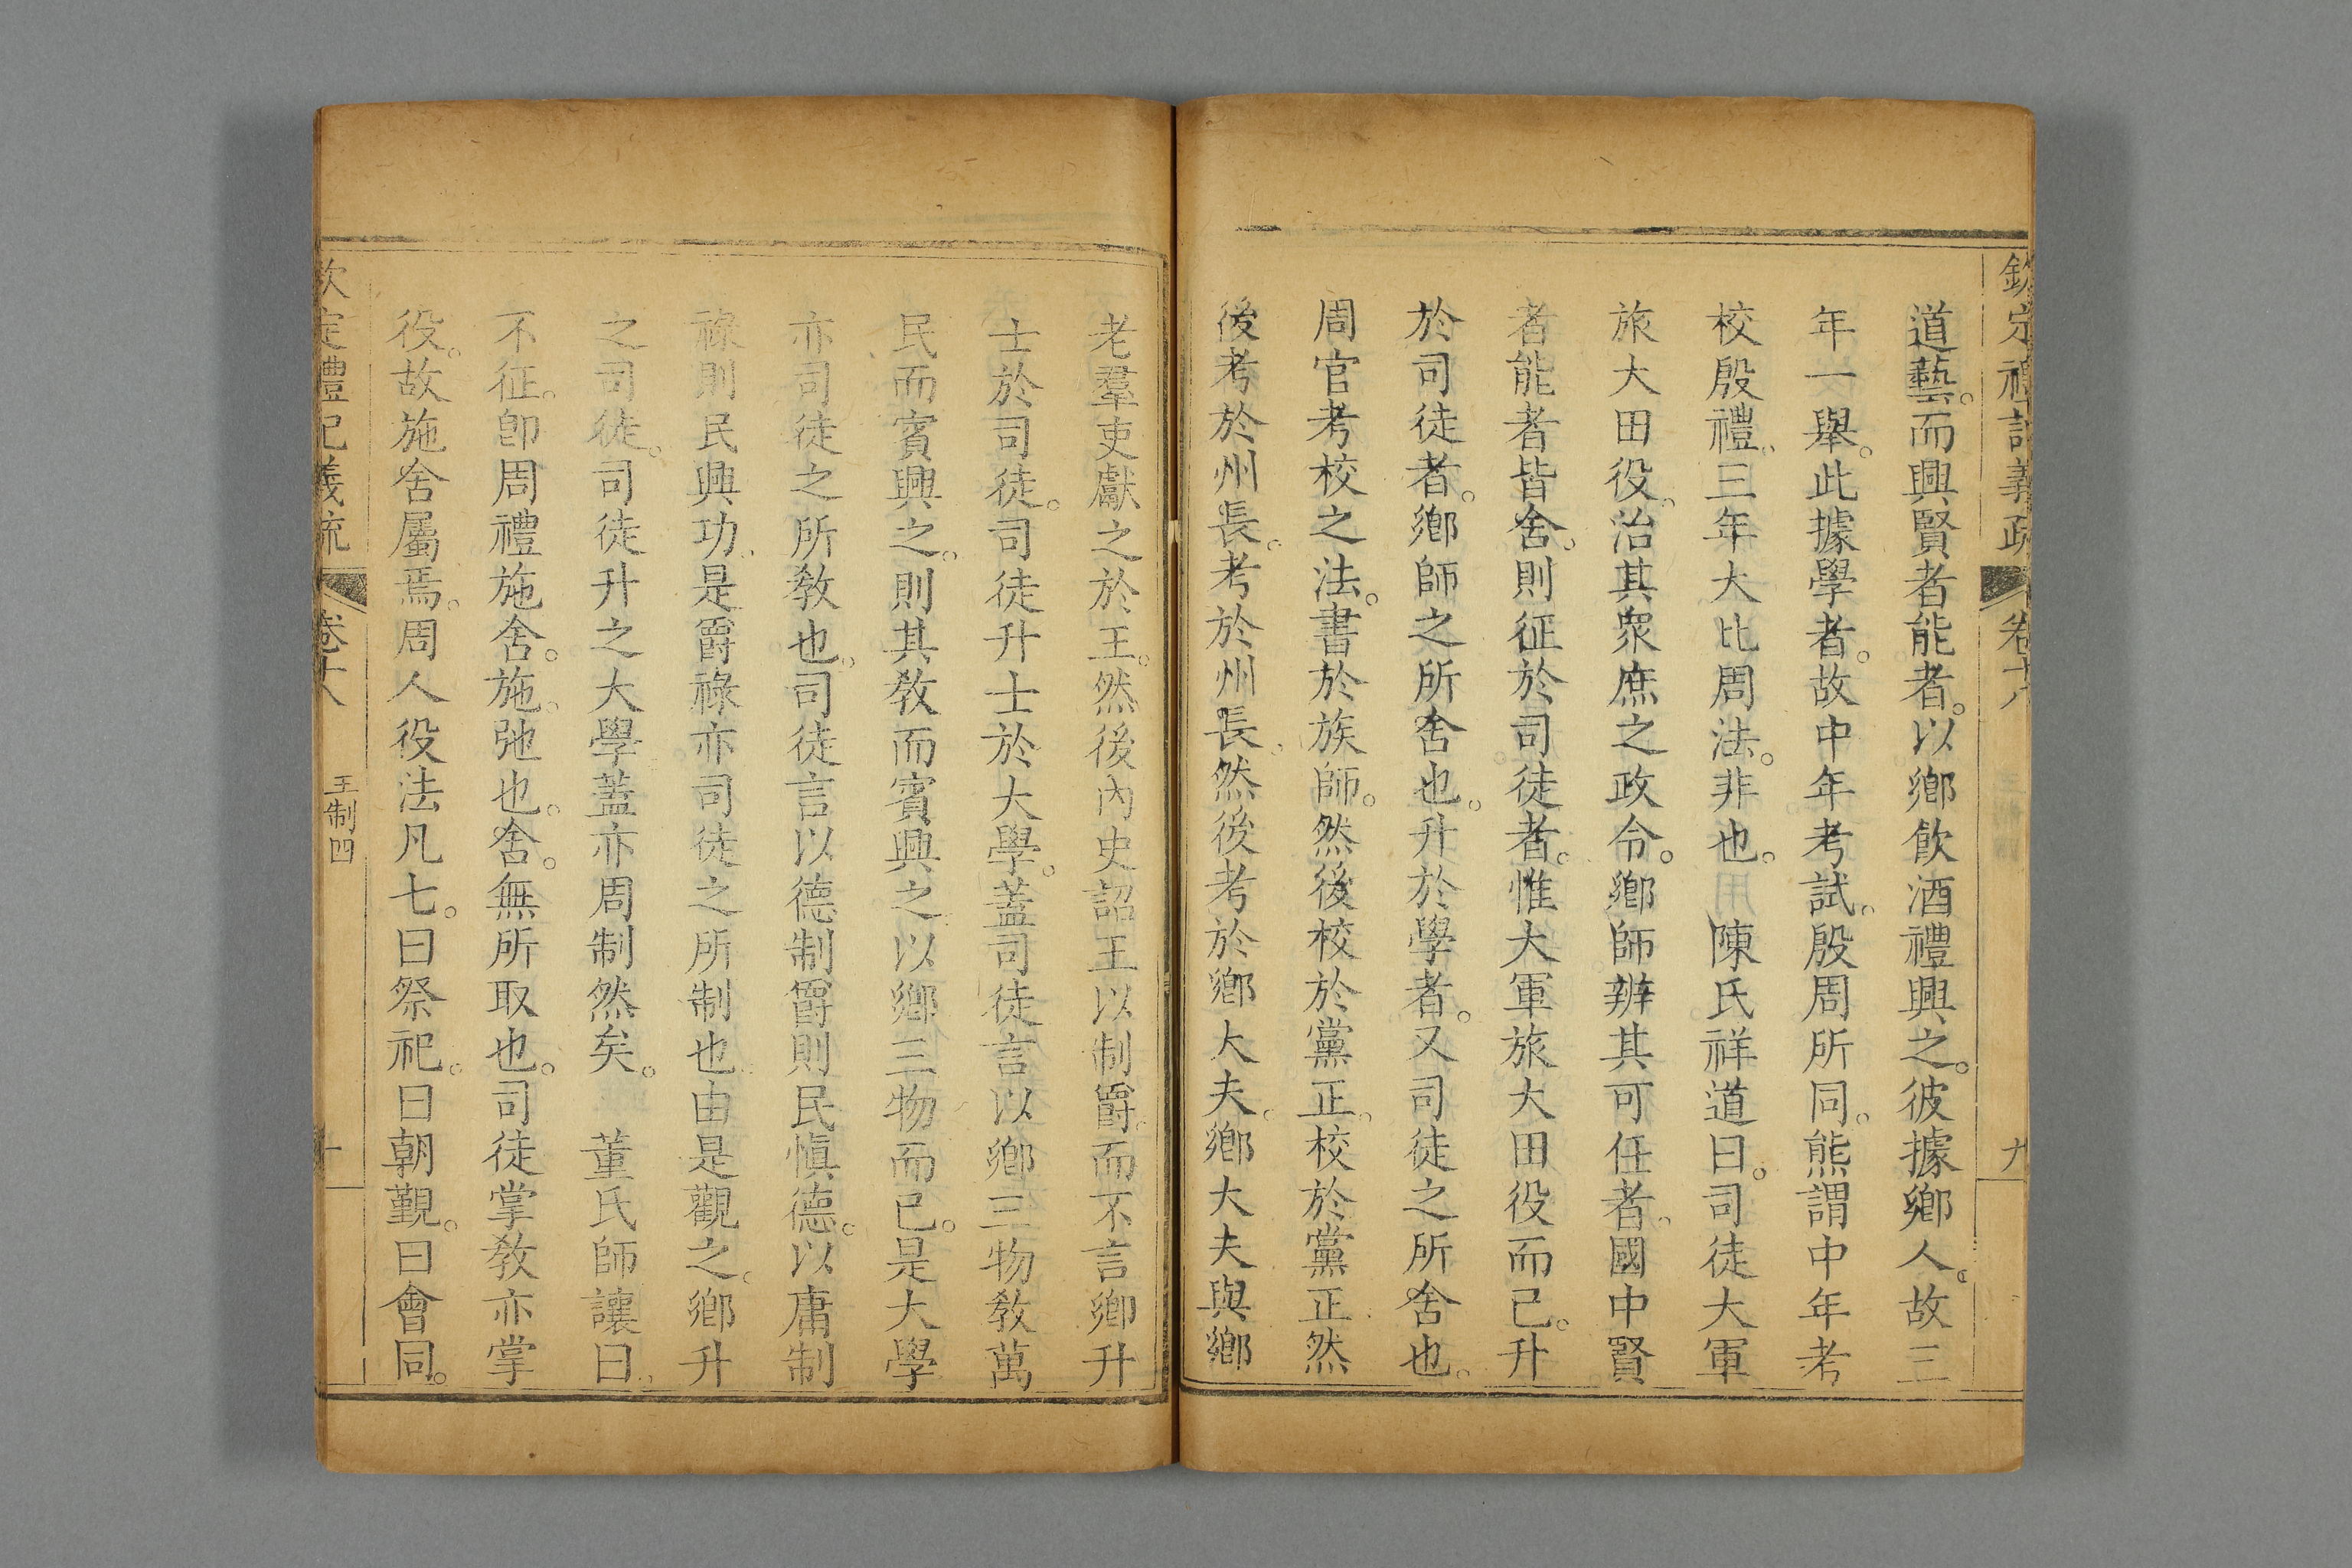 欽定禮記義疏 卷十八 九
道藝。而興賢者能者。以鄉飲酒禮興之。彼據鄉人。故三
年一舉。此據學者。故中年考試。殷周所同。熊謂中年考
校殷禮。三年大比周法。非也。 陳氏祥道曰。司徒大軍
旅大田役。治其眾庶之政令。鄉師辨其可任者。國中賢
者能者皆舍。則征於司徒者。惟大軍旅大田役而已。升
於司徒者。鄉師之所舍也。升於學者。又司徒之所舍也。
周官考校之法。書於族師。然後校於黨正。校於黨正然
後考於州長。考於州長。然後考於鄉大夫。鄉大夫與鄉
老羣吏獻之於王。然後內史詔王以制爵。而不言鄉升
士於司徒。司徒升士於大學。蓋司徒言以鄉三物教萬
民而賓興之。則其教而賓興之。以鄉三物而已。是大學
亦司徒之所教也。司徒言以德制爵則民慎德。以庸制
祿則民興功。是爵祿亦司徒之所制也。由是觀之。鄉升
之司徒。司徒升之大學蓋亦周制然矣。 董氏師讓曰。
不征。卽周禮施舍。施。弛也。舍。無所取也。司徒掌教亦掌
役。故施舍屬焉。周人役法凡七。曰祭祀。曰朝覲。曰會同。
欽定禮記義疏 卷十八 王制四 十